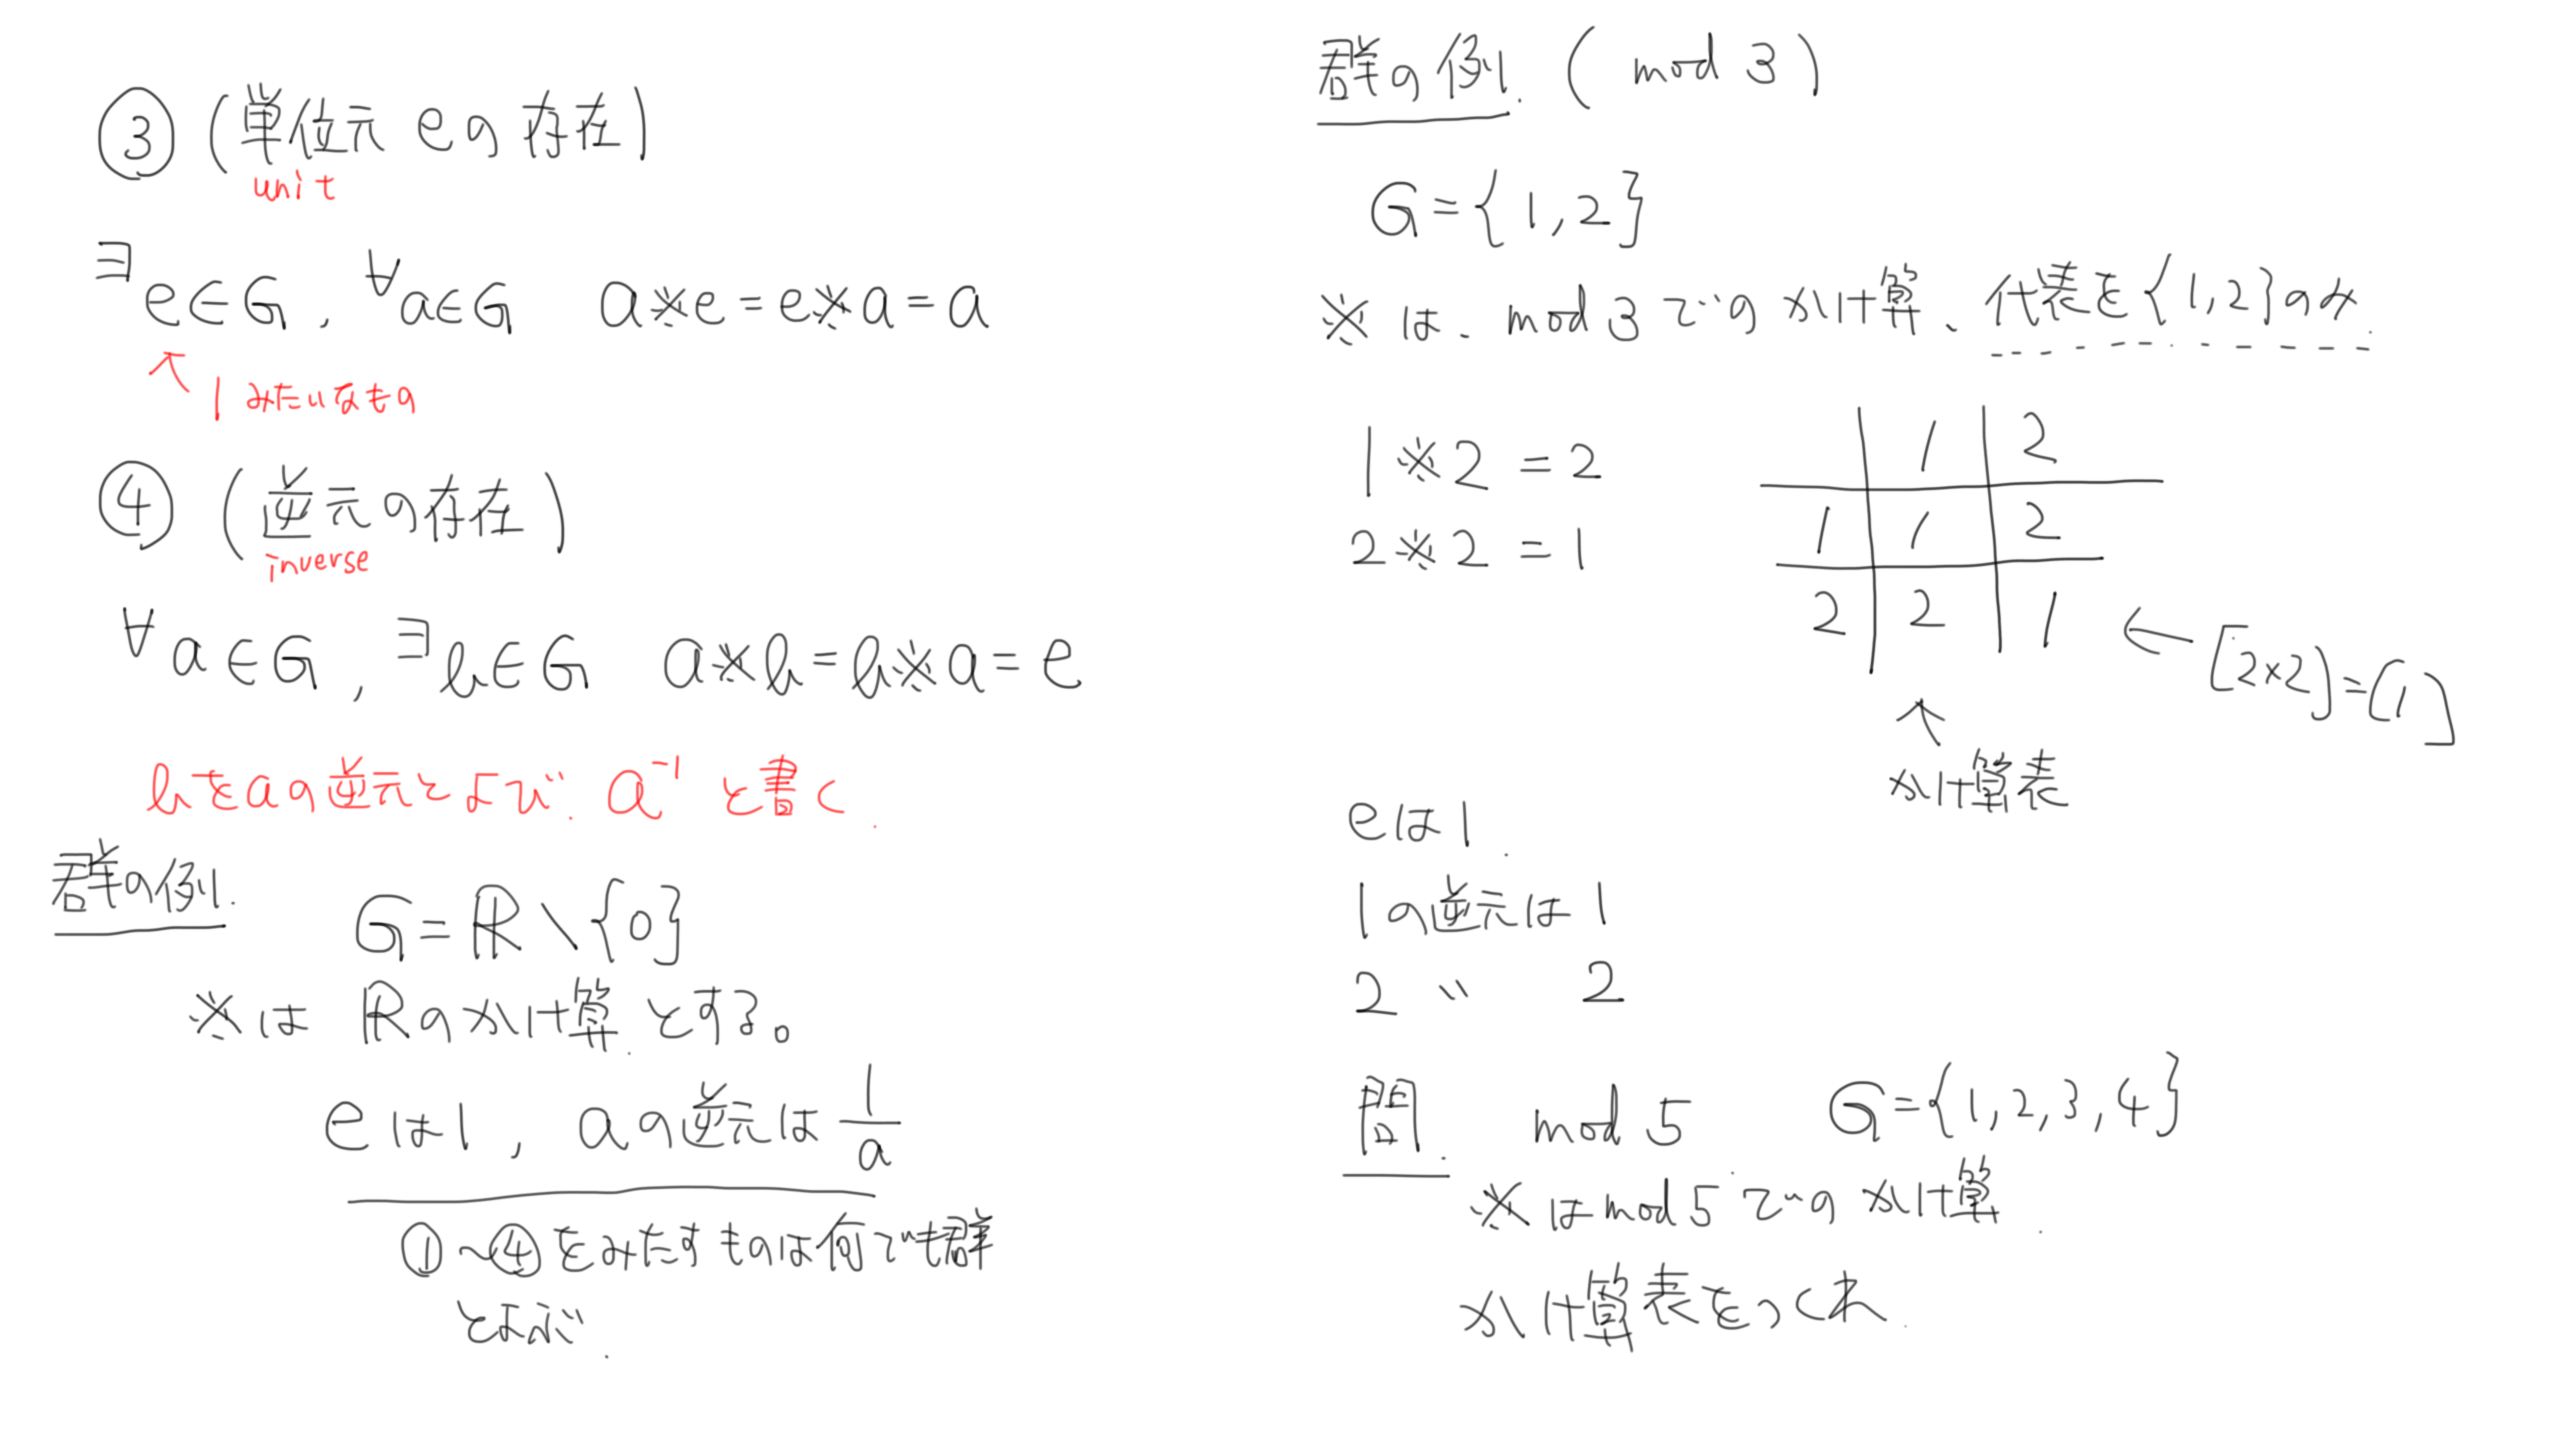 ③ (単位元 eの存在)
unit
∃e∈G, ∀a∈G a※e=e※a=a
↑ 1みたいなもの
④ (逆元の存在)
inverse
∀a∈G, ∃b∈G a※b=b※a=e
bをaの逆元とよび. a⁻¹ と書く.
群の例.
G=ℝ\{0}
※は ℝのかけ算とする。
eは1, aの逆元は 1/a
①~④をみたすものは何でも群
とよぶ.
群の例. (mod 3)
G={1,2}
※は、mod 3 でのかけ算、代表を{1,2}のみ.
1※2=2
2※2=1
1 2
1 1 2
2 2 1 ← [2×2]=[1]
↑
かけ算表
eは1.
1の逆元は1
2 〃 2
問. mod 5 G={1,2,3,4}
※はmod 5でのかけ算.
かけ算表をつくれ.